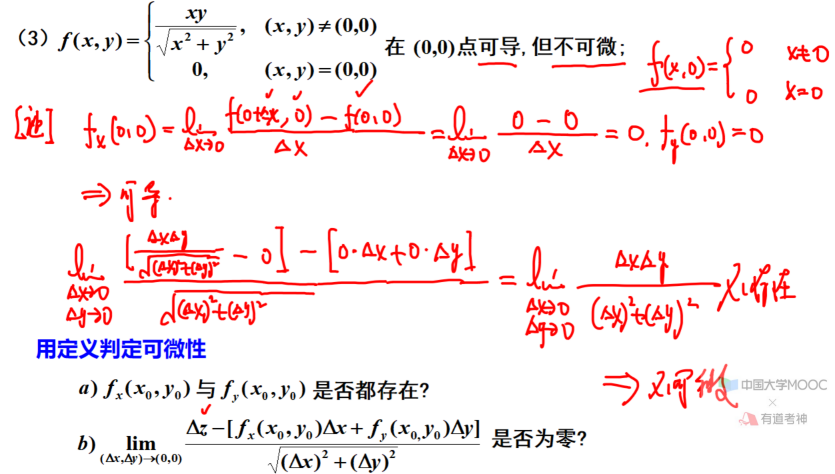 （3） f(x,y) = { xy/√(x²+y²), (x,y)≠(0,0)
0, (x,y)=(0,0) 在 (0,0)点可导,但不可微;
f(x,0) = { 0 x≠0
0 x=0
[证] fx(0,0) = lim Δx→0 (f(0+Δx, 0) − f(0,0))/Δx = lim Δx→0 (0 − 0)/Δx = 0. fy(0,0) = 0
⇒ 可导.
lim Δx→0 Δy→0 ([ΔxΔy/√((Δx)²+(Δy)²) − 0] − [0·Δx+0·Δy])/√((Δx)²+(Δy)²) = lim Δx→0 Δy→0 ΔxΔy/((Δx)²+(Δy)²) 不存在
⇒ 不可微
用定义判定可微性
a) fx(x₀,y₀) 与 fy(x₀,y₀) 是否都存在?
b) lim (Δx,Δy)→(0,0) (Δz−[fx(x₀,y₀)Δx + fy(x₀,y₀)Δy])/√((Δx)²+(Δy)²) 是否为零?
中国大学MOOC
×
有道考神